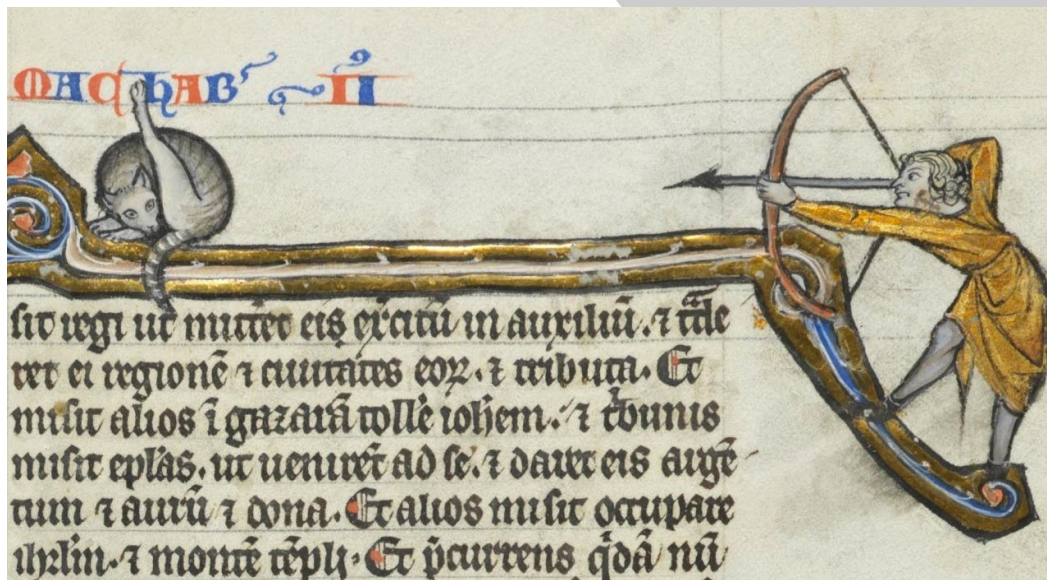 MACHAB' II
sit regi ut mitteret eis ex͛citū in auxiliū. ⁊ t͛de
ret ei regionē ⁊ ciuitates eoꝝ. ⁊ tributa. Et
misit alios ī gazarā tolle͛ ioh̄em. ⁊ t͛bunis
misit ep̄las. ut uenirēt ad se. ⁊ daret eis argē
tum ⁊ aurū ⁊ dona. Et alios misit occupare
ihrl̄m. ⁊ montē tēpli. Et p̄currens q̇dā nū